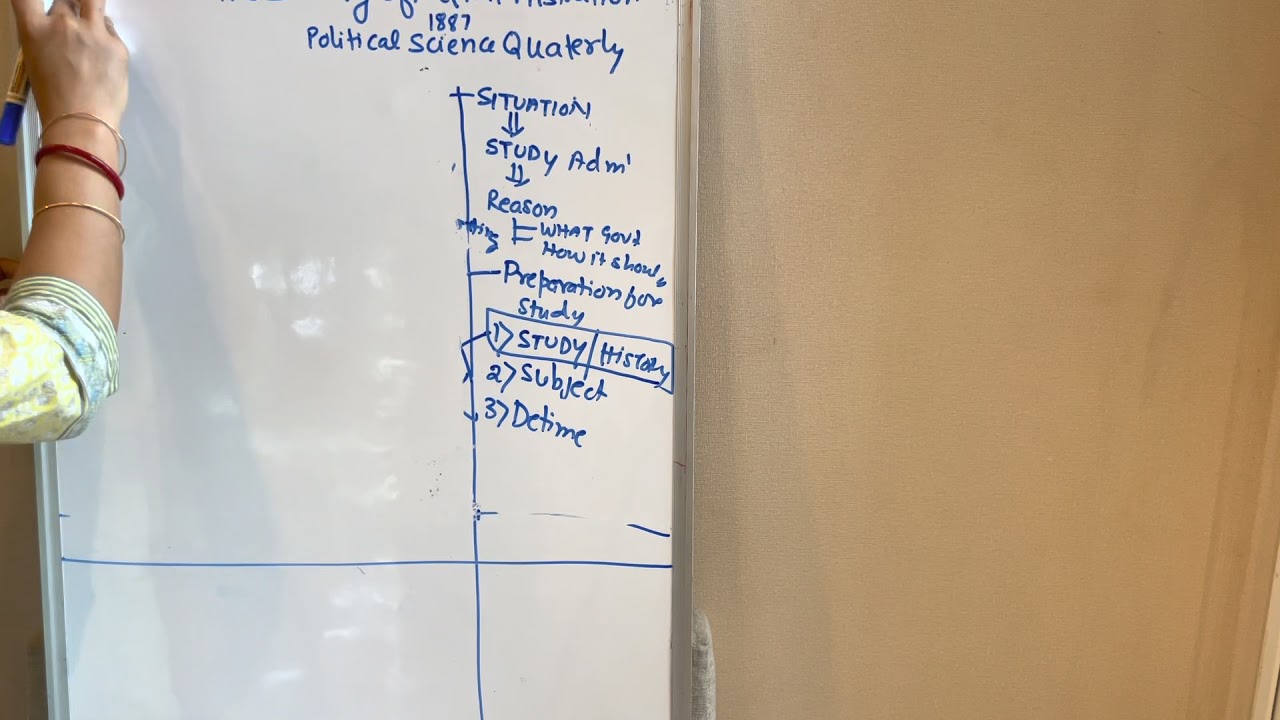 1887
Political Science Quaterly
SITUATION
STUDY Adm'
Reason
WHAT Govt
How it should
Preparation for
Study
1) STUDY / HISTORY
2) Subject
3) Detime